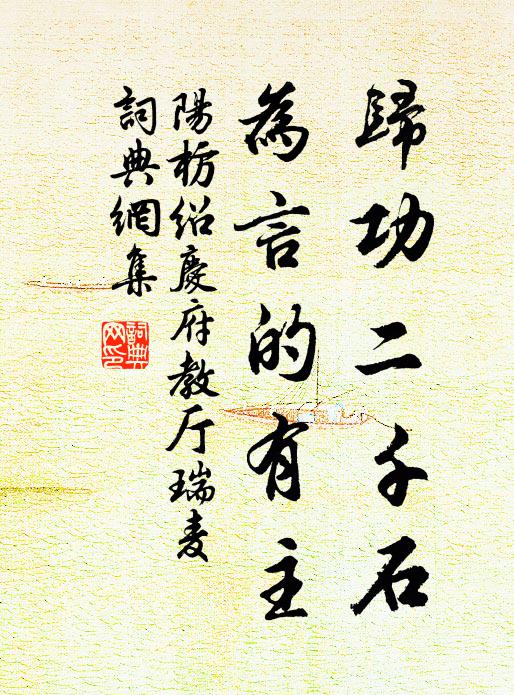 歸功二千石
為言的有主
陽枋紹慶府教厅瑞麦
詞典網集
詞典
网印